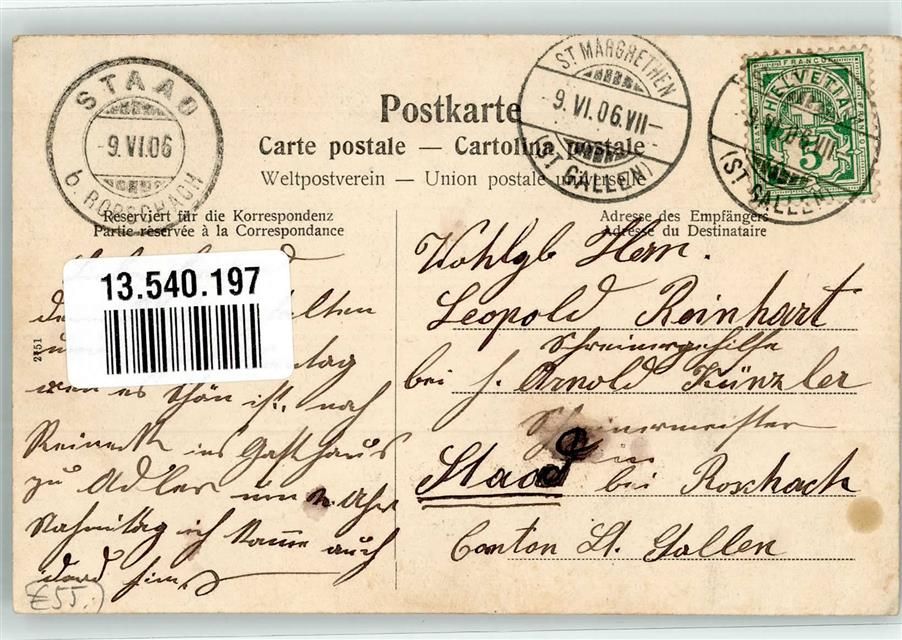 STAAD
-9.VI.06
b. RORSCHACH
ST MARGRETHEN
9.VI.06.VII-
(ST GALLEN)
FRANCO
HELVETIA
5
9.VI.06.VII
(ST GALLEN)
Postkarte
Carte postale — Cartolina postale
Weltpostverein — Union postale universelle
Reserviert für die Korrespondenz
Partie réservée à la Correspondance
Adresse des Empfängers
Adresse du Destinataire
13.540.197
2751
wen es schön ist, nach
Reineck ins Gasthaus
zu Adler um 2 Uhr
Nahmitag ich kame auch
Wohlgb Herrn.
Leopold Reinhart
Schreinergehilfe
bei H. Arnold Künzler
Schreinermeister
in
Staad bei Roschach
Canton St. Gallen
€55.-)